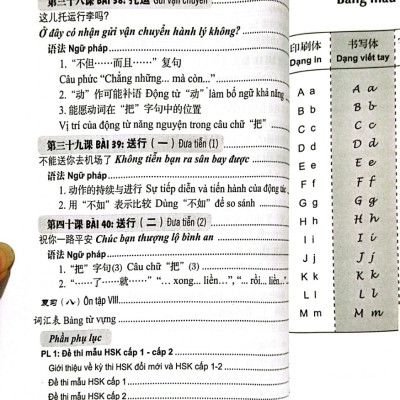 第三十八课 BÀI 38: 托运 Gửi vận chuyển
这儿托运行李吗?
Ở đây có nhận gửi vận chuyển hành lý không?
语法 Ngữ pháp
1. “不但……而且……” 复句
Câu phức “Chẳng những... mà còn...”
2. “动”作可能补语 Động từ “动” làm bổ ngữ khả năng
3. 能愿动词在“把”字句中的位置
Vị trí của động từ năng nguyện trong câu chữ “把”
第三十九课 BÀI 39: 送行（一）Đưa tiễn (1)
不能送你去机场了 Không tiễn bạn ra sân bay được
语法 Ngữ pháp
1. 动作的持续与进行 Sự tiếp diễn và tiến hành của động tác
2. 用“不如”表示比较 Dùng “不如” để so sánh
第四十课 BÀI 40: 送行（二）Đưa tiễn (2)
祝你一路平安 Chúc bạn thượng lộ bình an
语法 Ngữ pháp
1. “把”字句(3) Câu chữ “把” (3)
2. “……了……就……” “... xong... liền...”, “... rồi... liền...”
复习（八）Ôn tập VIII
词汇表 Bảng từ vựng
Phần phụ lục
PL 1: Đề thi mẫu HSK cấp 1 - cấp 2
Giới thiệu về kỳ thi HSK đổi mới và HSK cấp 1-2
Đề thi mẫu HSK cấp 1
Đề thi mẫu HSK cấp 2
Bảng mẫu
印刷体 书写体
Dạng in Dạng viết tay
A a A a
B b B b
C c C c
D d D d
E e E e
F f F f
G g G g
H h H h
I i I i
J j J j
K k K k
L l L l
M m M m